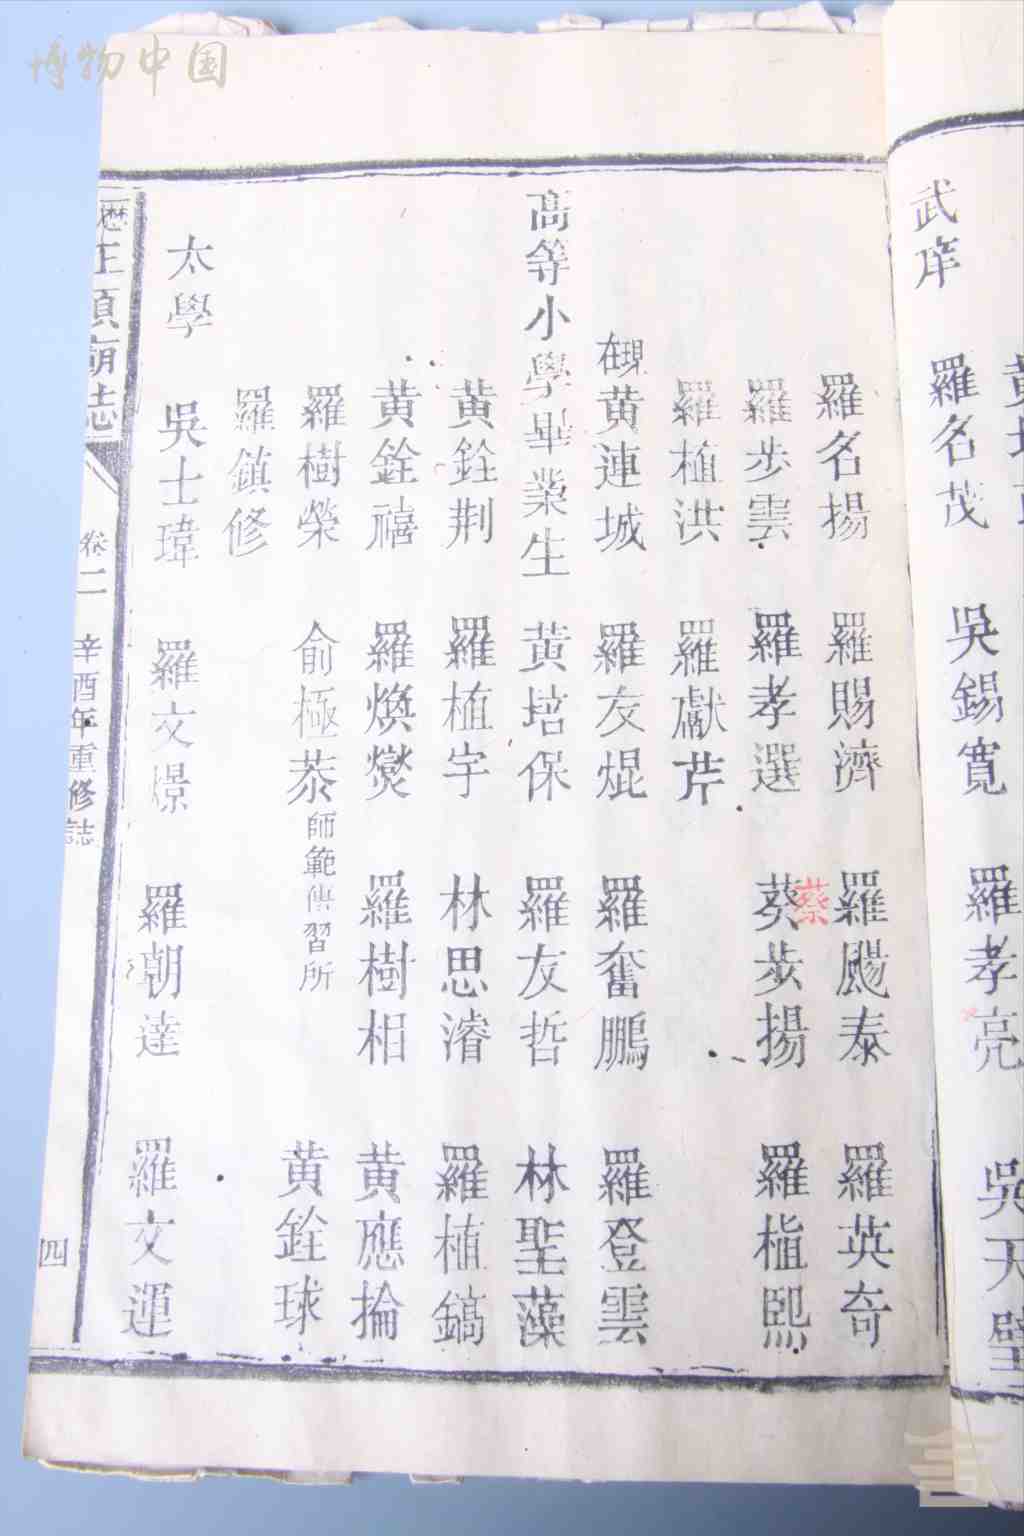 博物中国
武庠
羅名茂 吳錫寬 羅孝亮 吳天璧
羅名揚 羅賜濟 羅颺泰 羅英奇
羅步雲 羅孝選 葵步揚 羅植熙
蔡
羅植洪 羅獻芹
現在黄連城 羅友焜 羅奮鵬 羅登雲
高等小學畢業生 黄培保 羅友哲 林聖藻
黄銓荆 羅植宇 林思濬 羅植鎬
黄銓禧 羅煥爕 羅樹相 黄應掄
羅樹榮 俞極恭師範傳習所 黄銓球
羅鎮修
太學 吳士瑋 羅文憬 羅朝達 羅文運
歷王頭廟志 卷二 辛酉年重修誌 四